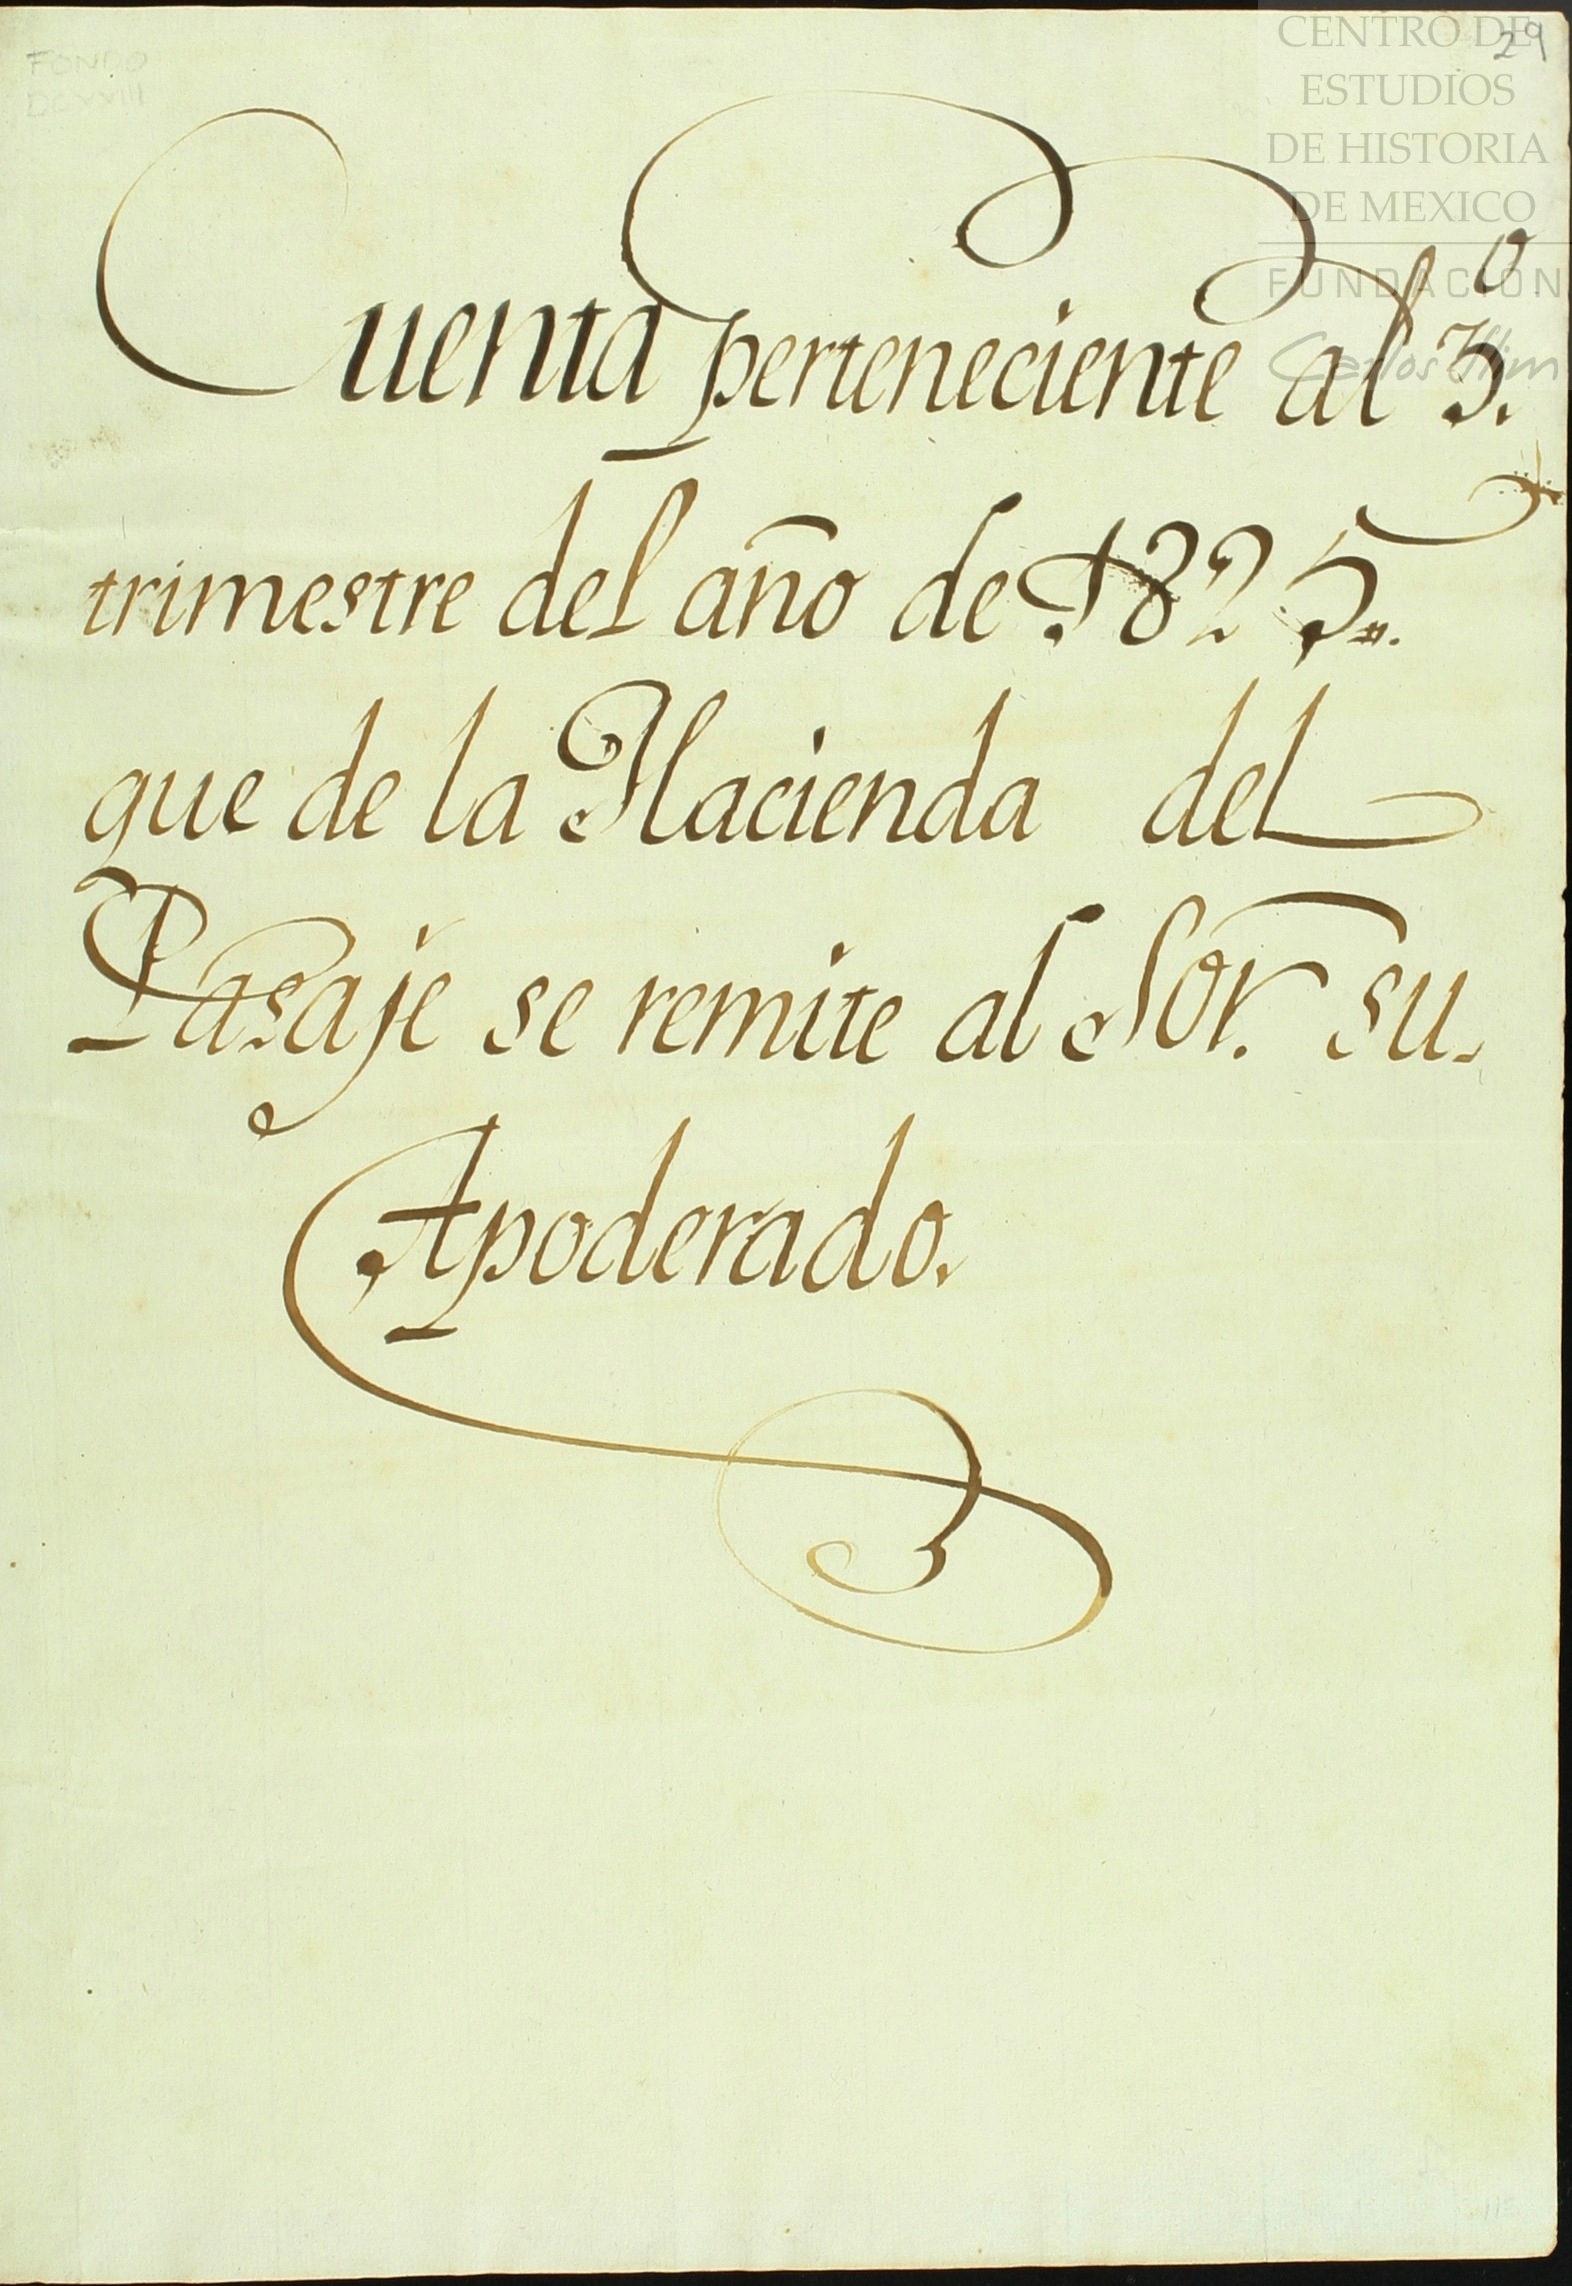 29
FONDO
CENTRO DE
ESTUDIOS
DE HISTORIA
DE MEXICO
FUNDACIÓN
Carlos Slim
Cuenta perteneciente al 3.º
trimestre del año de 1825.
que de la Hacienda del
Pasaje se remite al Sor. su
Apoderado.